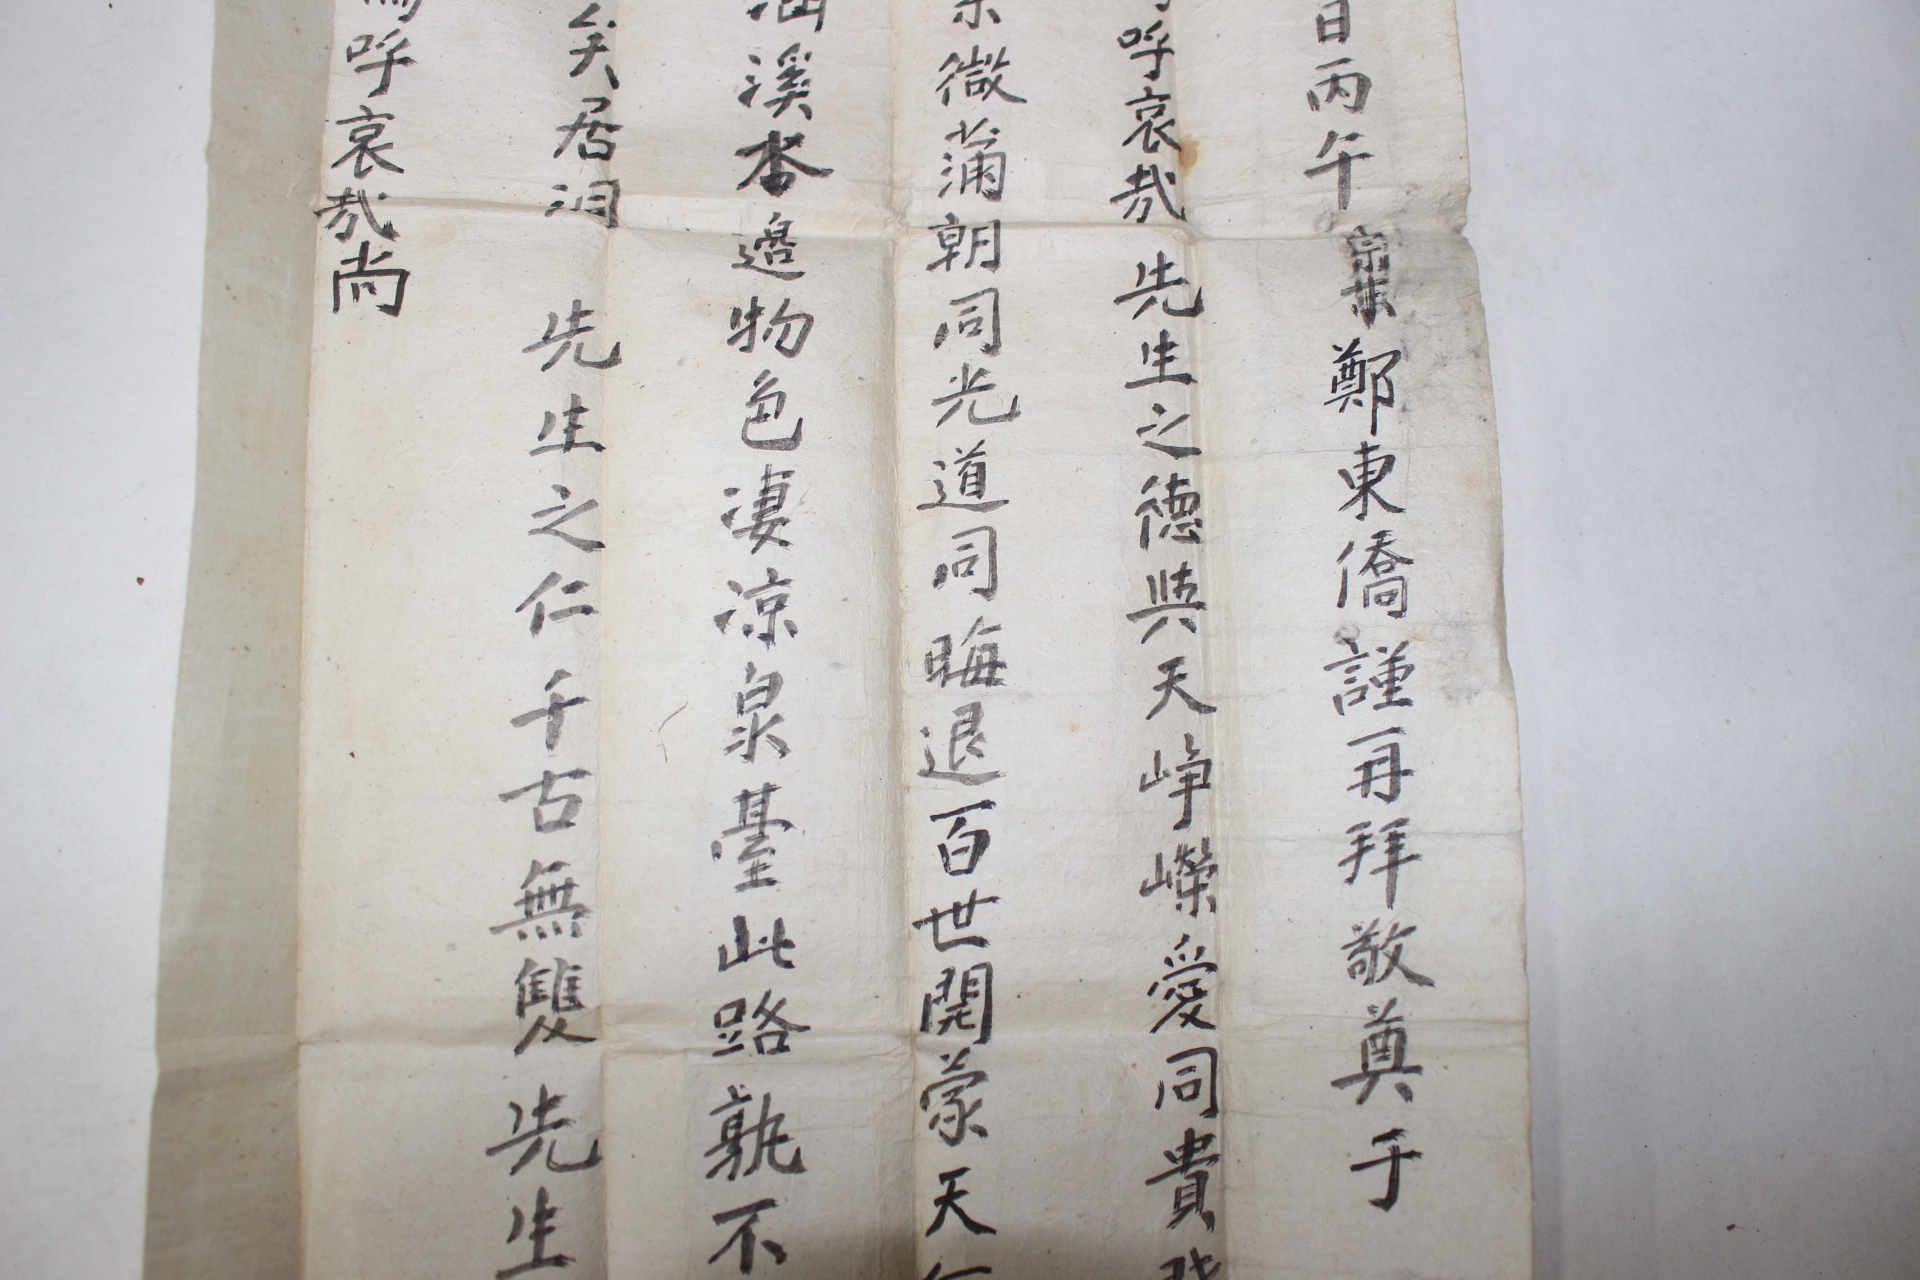 日丙午 鄭東僑謹再拜敬奠于
呼哀哉 先生之德與天崢嶸愛同貴
微蒲朝同光道同晦退百世開蒙天
溪杏邉物色凄凉泉臺此路孰不
矣居洞 先生之仁千古無雙 先生
呼哀哉尚